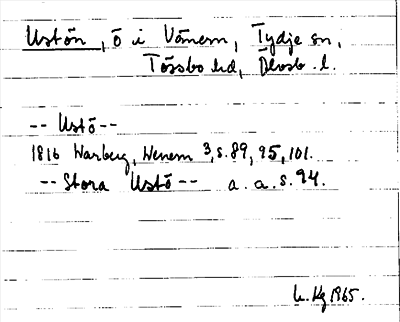 Ustön, ö i Vänern, Tydje sn,
Tössbo hd, Älvsb. l.
-- Ustö --
1816 Warberg, Wenern 3, s. 89, 95, 101.
-- Stora Ustö -- a. a. s. 94.
1965.